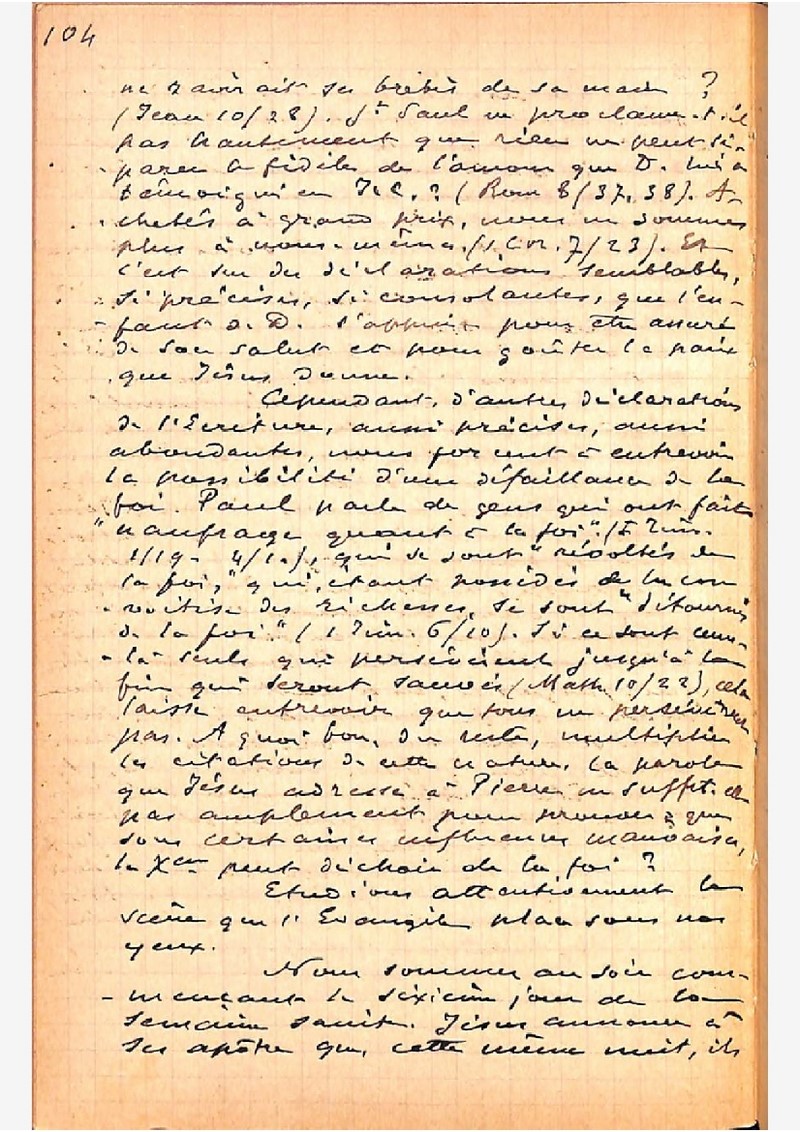 104
ne ravirait ses brebis de sa main ?
(Jean 10/28). St Paul ne proclame-t-il
pas hautement que rien ne peut sé-
parer le fidèle de l'amour que D. lui a
témoigné en J.C. ? (Rom 8/37, 38). A-
chetés à grand prix, nous ne sommes
plus à nous-mêmes. (1 Cor. 7/23). Et
c'est sur des déclarations semblables,
si précises, si consolantes, que l'en-
fant de D. s'appuie pour être assuré
de son salut et pour goûter la paix
que Jésus donne.
Cependant, d'autres déclarations
de l'Ecriture, aussi précises, aussi
abondantes, nous forcent à entrevoir
la possibilité d'une défaillance de la
foi. Paul parle de gens qui ont fait
"naufrage quant à la foi". (I Tim.
1/19 - 4/1.), qui se sont "révoltés de
la foi," qui, étant possédés de la con
voitise des richesses, se sont "détournés
de la foi" (1 Tim. 6/10). Si ce sont ceux-
là seuls qui persévèrent jusqu'à la
fin qui seront sauvés (Matth 10/22), cela
laisse entrevoir que tous ne persévèrent
pas. A quoi bon, du reste, multiplier
les citations de cette nature. La parole
que Jésus adresse à Pierre ne suffit-elle
pas amplement pour prouver que
sous certaines influences mauvaises,
le Xen peut déchoir de la foi ?
Etudions attentivement la
scène que l'Evangile place sous nos
yeux.
Nous sommes au soir com-
mençant le sixième jour de la
semaine sainte. Jésus annonce à
ses apôtres que, cette même nuit, ils